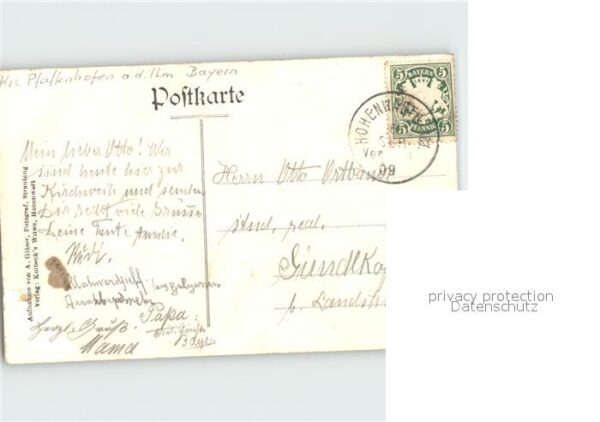 Krs. Pfaffenhofen a.d. Ilm Bayern
Postkarte
5 BAYERN 5
5 PFENNIG 5
HOHENWART
Ver
09
Mein lieber Otto! Wir
sind heute hier zur
Kirchweih und senden
Dir recht viele Grüsse
Deine Tante Amalie.
Papa
Herzl. Gruß
Mama
Herrn Otto
stud. real.
b. Landsh
Aufnahme von A. Gläser, Fotograf, Straubing
Verlag: Kolbeck's Witwe, Hohenwart
privacy protection
Datenschutz